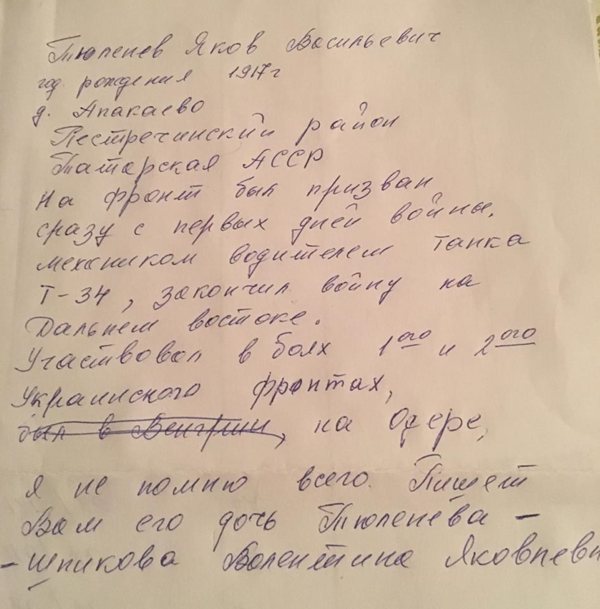 Тюленев Яков Васильевич
год рождения 1917г
д. Апакаево
Пестречинский район
Татарская АССР
На фронт был призван
сразу с первых дней войны.
механиком водителем танка
Т-34, закончил войну на
Дальнем востоке.
Участвовал в боях 1ого и 2ого
Украинского фронтах,
был в Венгрии, на Одере,
Я не помню всего. Пишет
Вам его дочь Тюленева –
– Шпикова Валентина Яковлевн